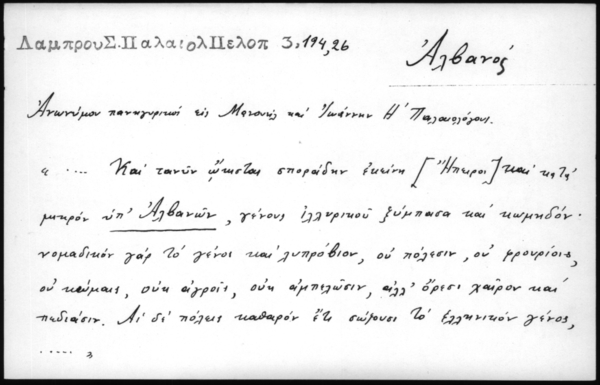 Λαμπρου Σ. ΠαλαιολΠελοπ 3, 194, 26
Ἀλβανός
Ἀνωνύμου πανηγυρικοί εἰς Μανουήλ καί Ἰωάννην Η΄ Παλαιολόγους.
« .... Καί τανῦν ᾤκισται σποράδην ἐκείνη [Ἤπειρος] καί κατά
μικρόν ὑπ' Ἀλβανῶν, γένους ἰλλυρικοῦ ξύμπασα καί κωμηδόν·
νομαδικόν γάρ τό γένος καί λυπρόβιον, οὐ πόλεσιν, οὐ φρουρίοις,
οὐ κώμαις, οὐκ ἀγροῖς, οὐκ ἀμπελῶσιν, ἀλλ' ὄρεσι χαῖρον καί
πεδιάσιν. Αἱ δέ πόλεις καθαρόν ἔτι σώζουσι τό ἑλληνικόν γένος,
.....»